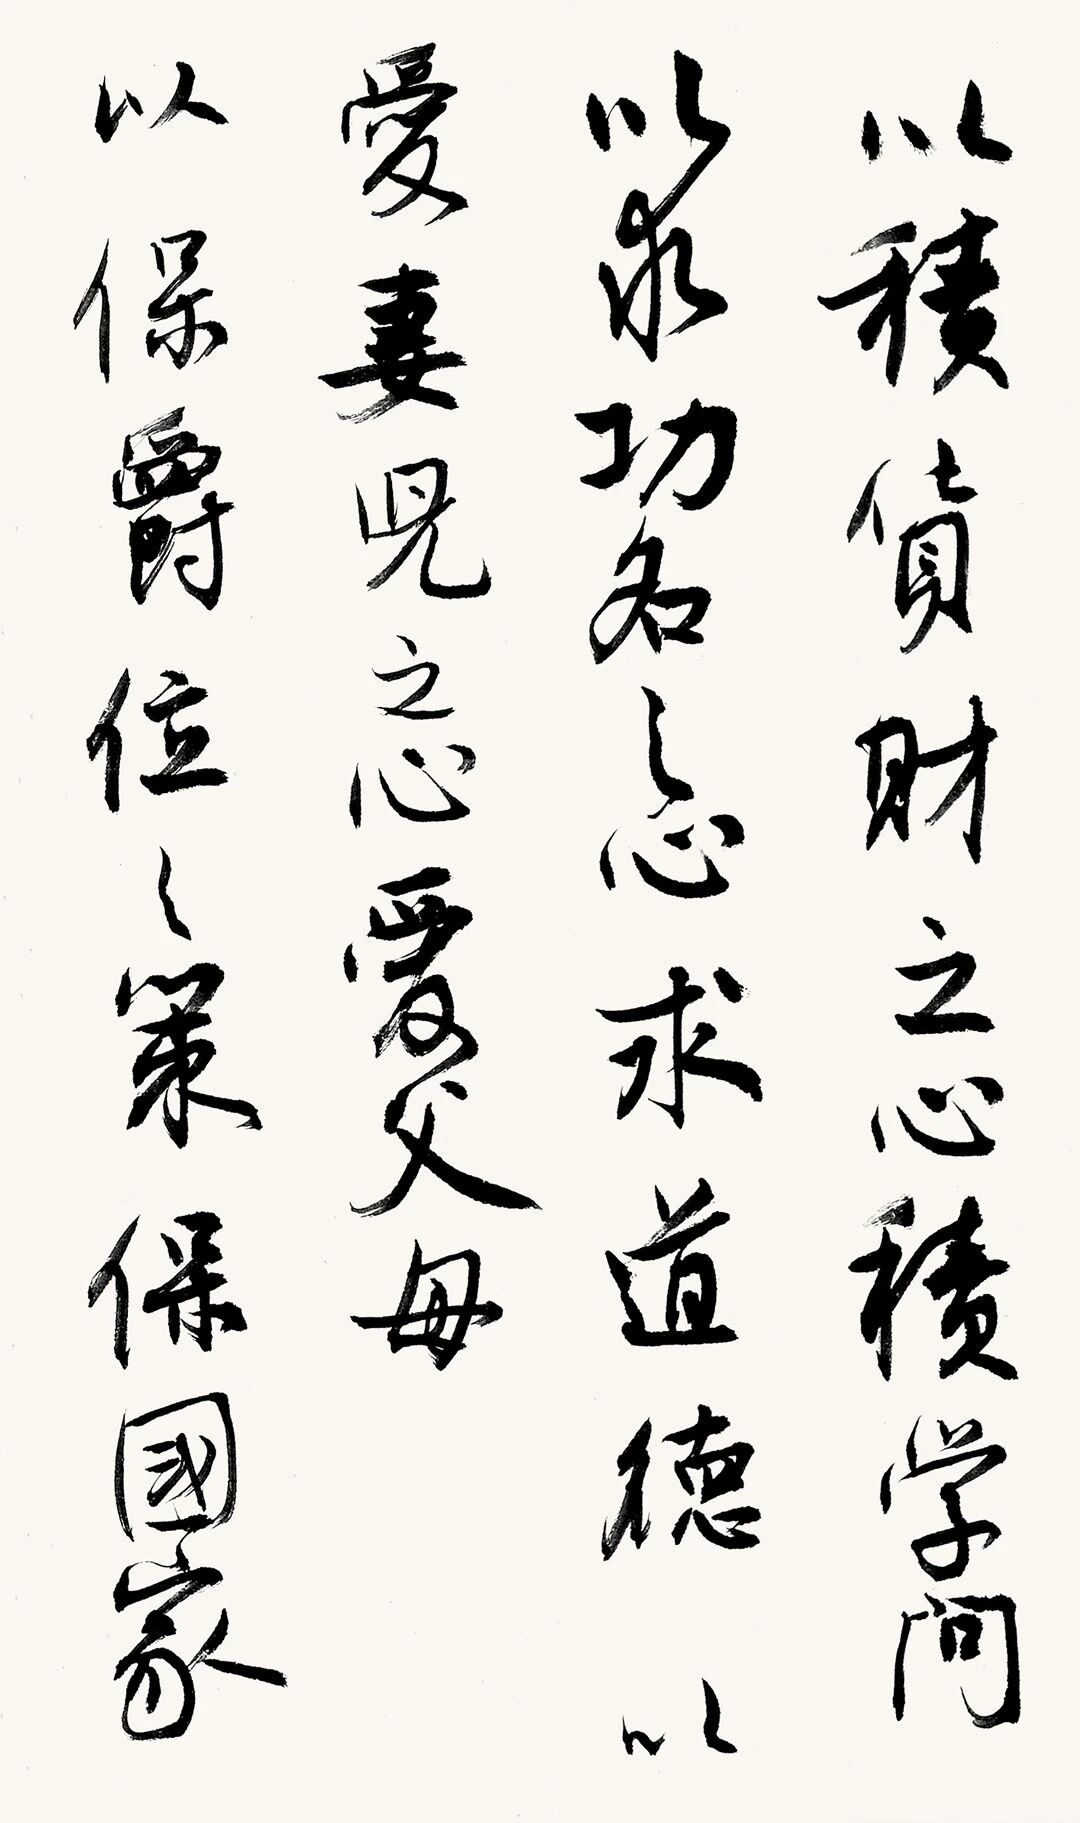 以積貨財之心積学问
以求功名之心求道德以
愛妻児之心愛父母
以保爵位之策保國家